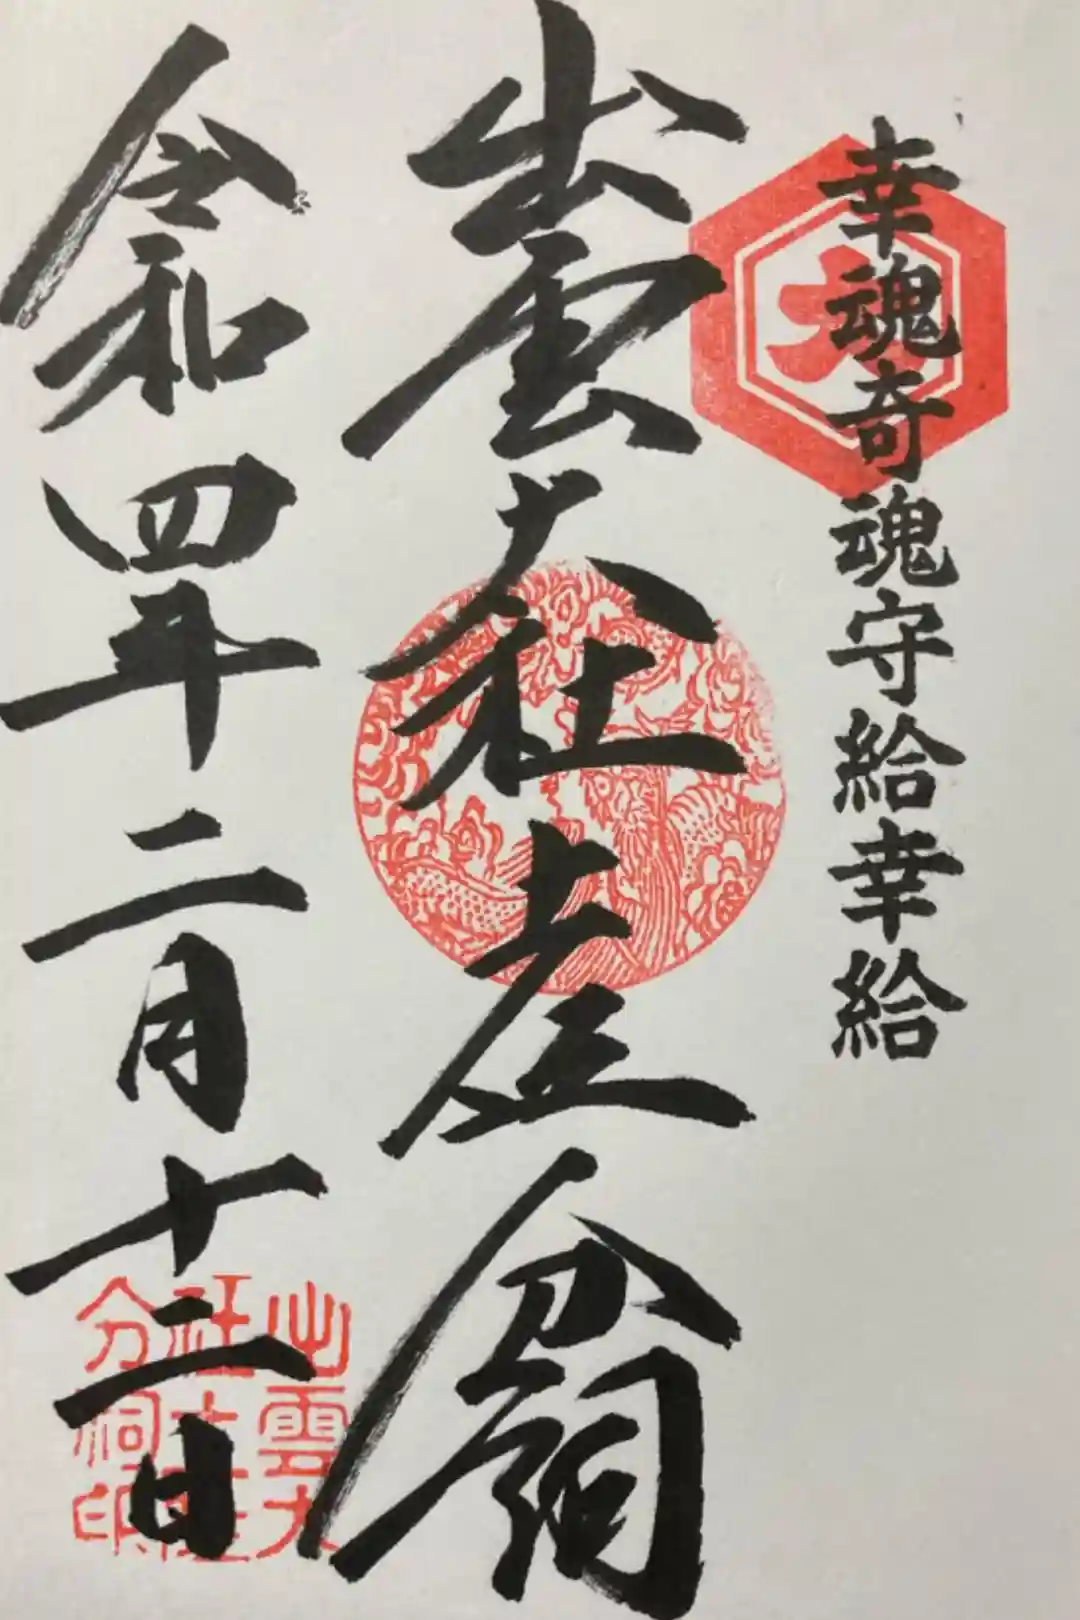 幸魂奇魂守給幸給
大
出雲大社土佐分祠
令和四年二月十二日
出雲大
社土佐
分祠印